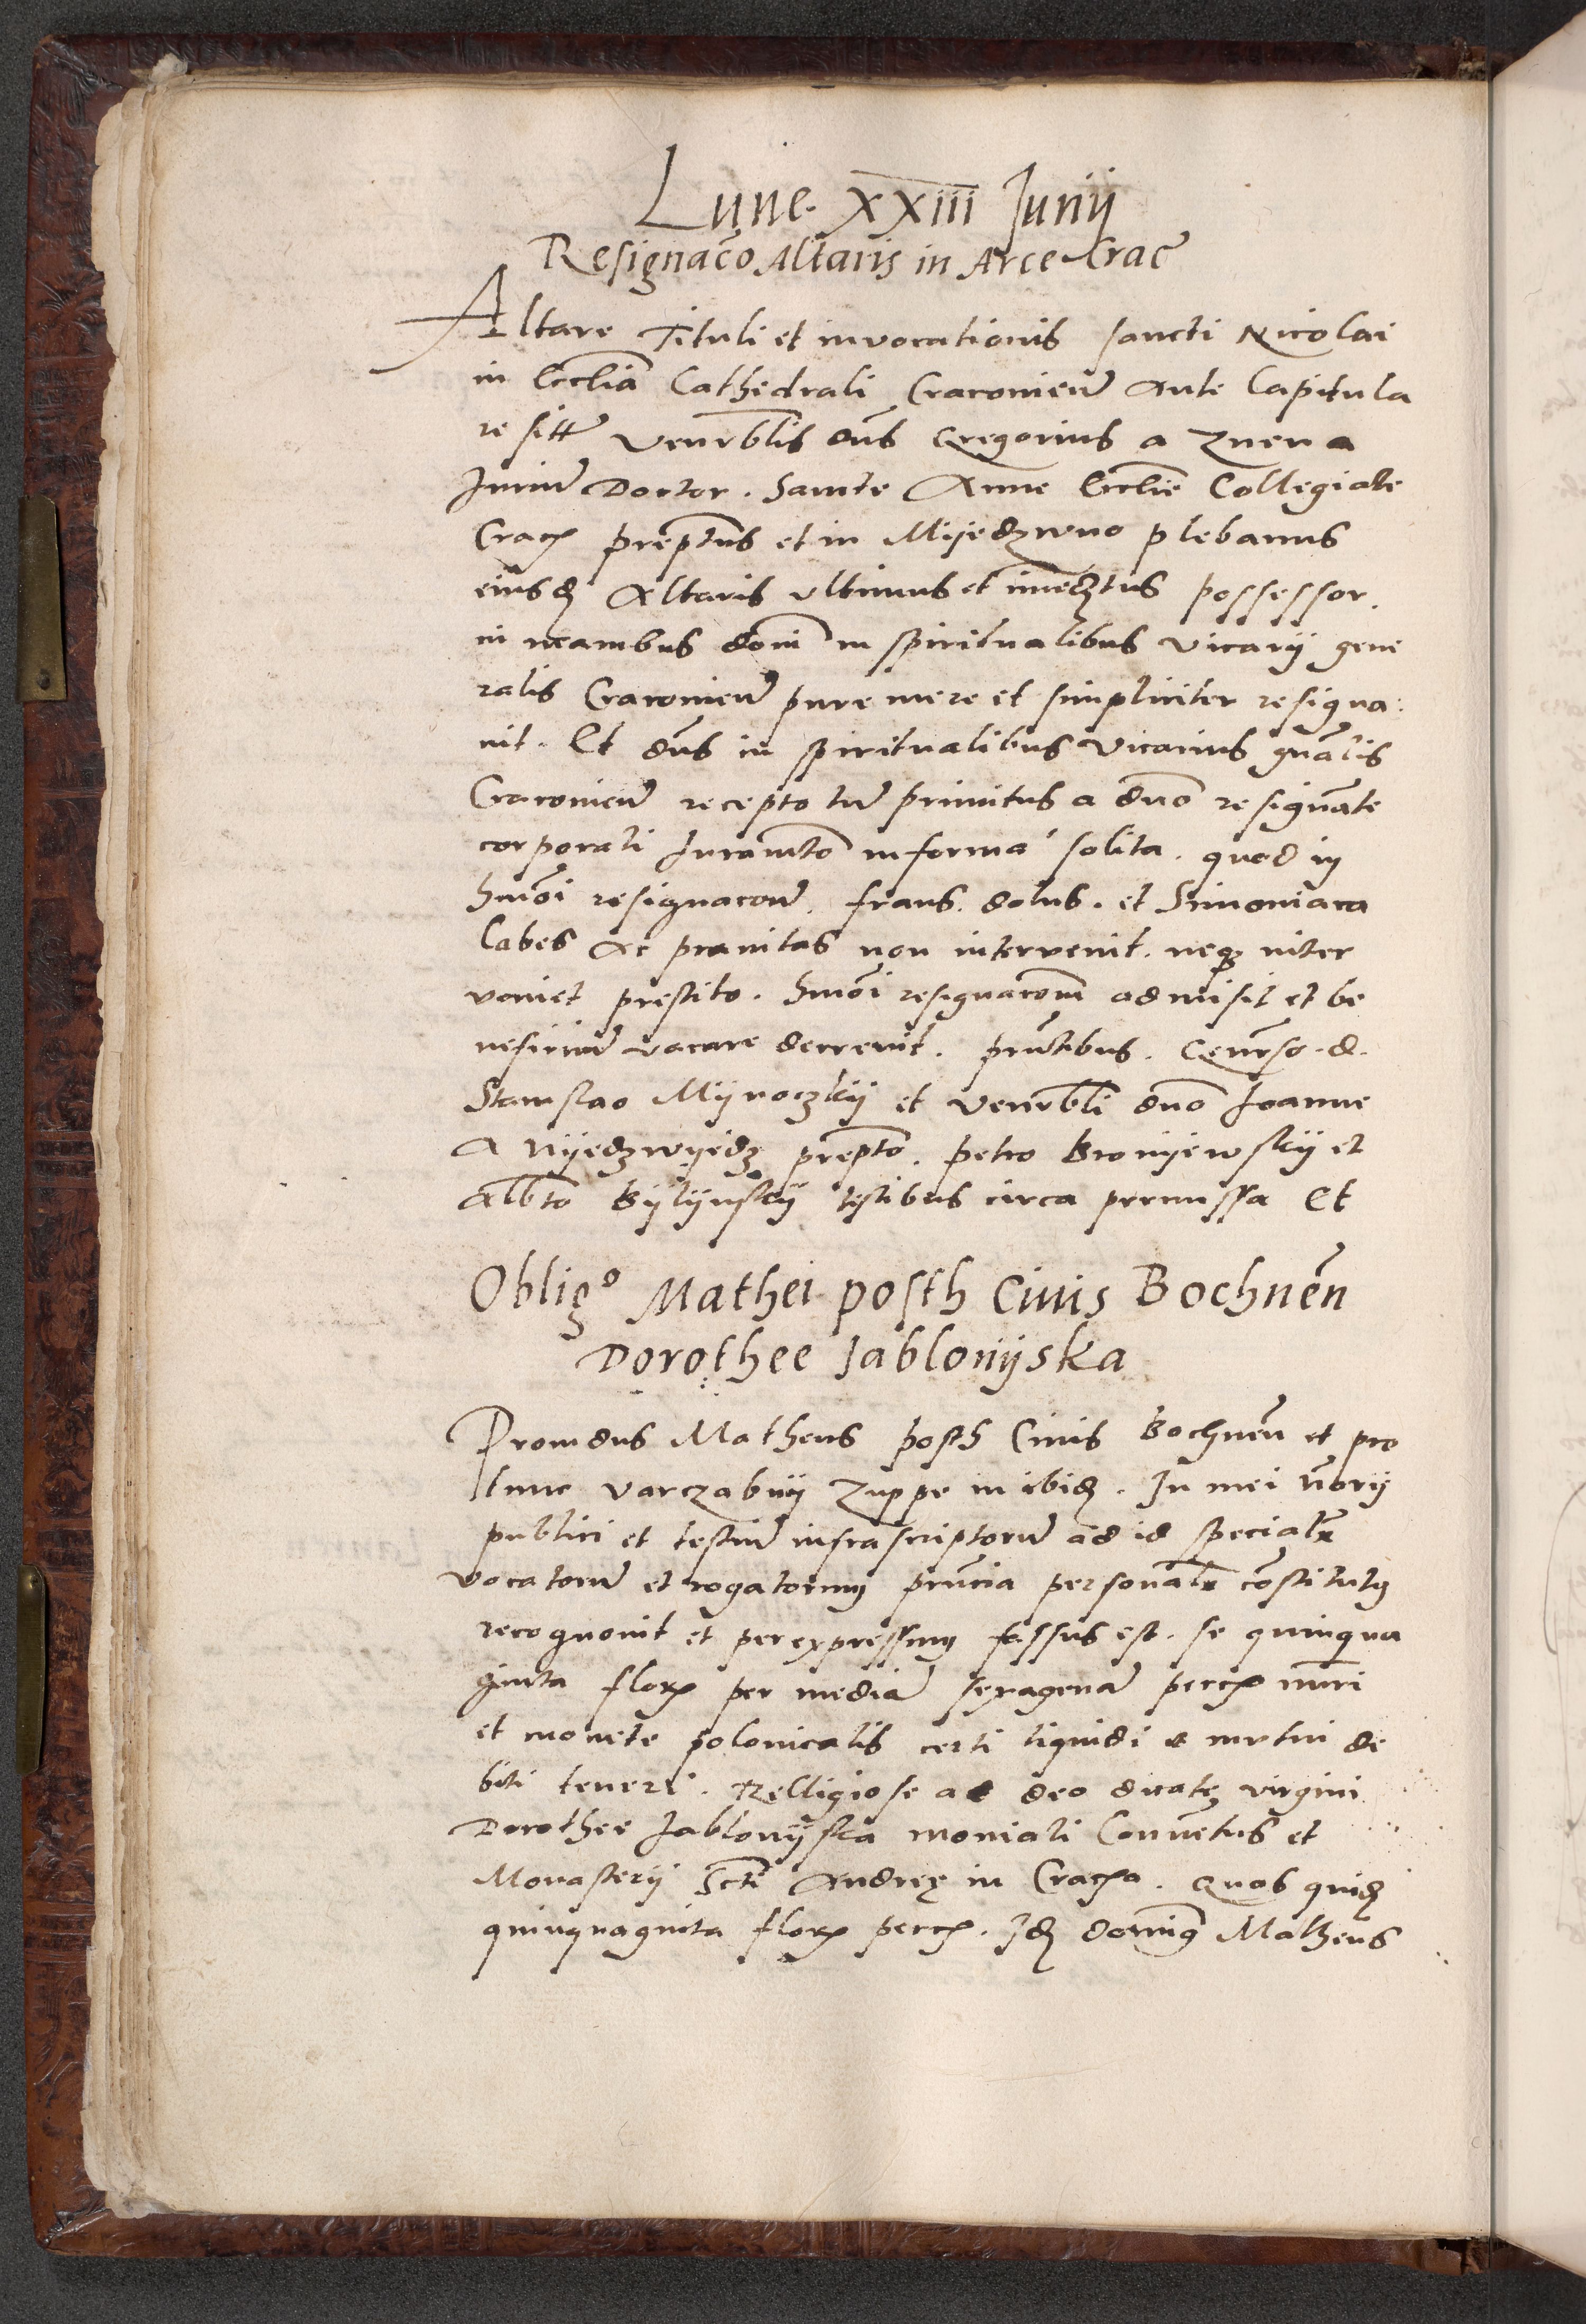 Lune. XXIII Junij
Resignac̄o Altaris in Arce Crac̄
Altare Tituli et invocationis sancti Nicolai
in Ecclīa Cathedrali Cracovieñ Ante Capitula
re sitū Venerblis dn̄s Gregorius a Znena
Juriū Doctor. Sancte Anne Eccliē Collegiate
Crac. preptūs et in Mijedzwno plebanus
eiusdē Altaris ultimus et imedtus possessor.
in manibus domī in spiritualibus vicarij gene
ralis Cracovieñ pure mere et simpliciter resigna:
vit. Et dn̄s in spiritualibus Vicarius gnālis
Cracovieñ recepto tn̄ primitus a dn̄o resignāte
corporali Juramto in forma solita. quod in
hmōi resignacoē. fraus. dolus. et Simoniaca
labes Ac pravitas non intervenit. neq inter
veniet prestito. hmōi resignacoēm admisit et be
neficiū vacare decrevit. pn̄tibus. Genrso. d.
Stanislao Mijnoczkij et Venerbli dn̄o Joanne
A Nijedzwijedz prepto. petro Bronijewskij et
Albto Bijlijnskij testibus circa premissa Et
Oblig° Mathei posth Civis Bochnēn
Dorothee Jablonijska
Providus Matheus posth Civis Bochnēn et pro
tunc varczabnij Zuppe in ibidē. In mei notrij
publici et testiū infrascriptorū ad id specialr
vocatorū et rogatorum prn̄cia personalr cōstitutus
recognovit et per expressum fassus est. se quinqua
ginta florx per mediā sexagenā peccx numri
et monete polonicalis certi liquidi e mutui de
biti teneri. Relligiose ac deo dicatę virgini
Dorothee Jablonijska moniali Conventus et
Monasterij Scti Andreę in Crac. Quos quidē
quinquaginta florx peccx. Idē dominus Matheus